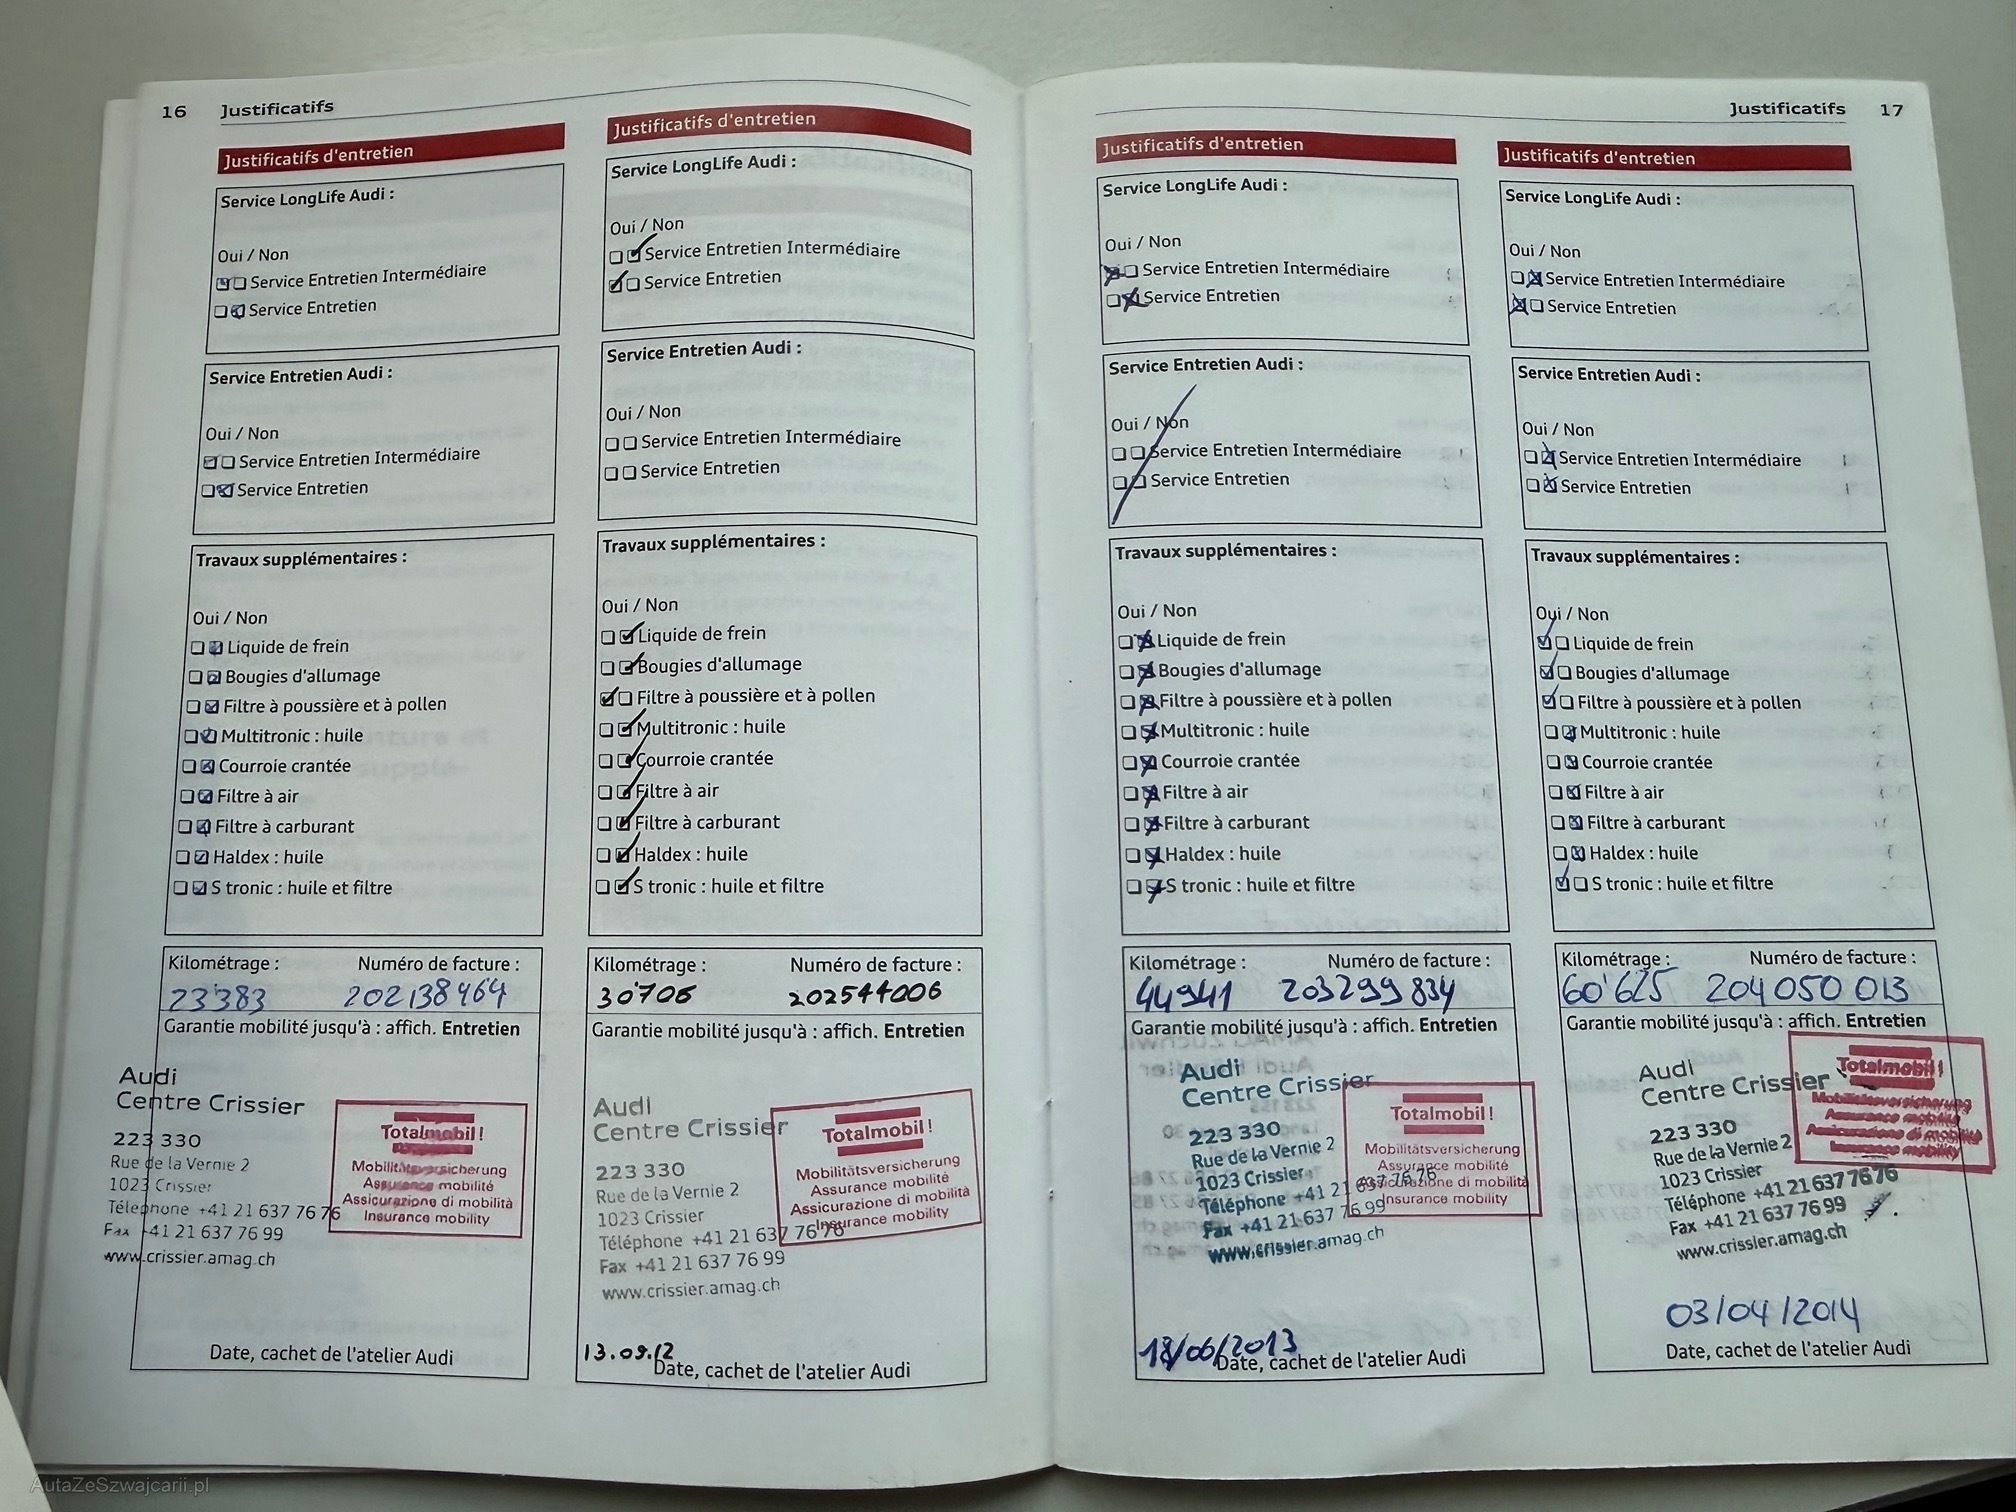 16 Justificatifs
Justificatifs d'entretien
Service LongLife Audi :
Oui / Non
Service Entretien Intermédiaire
Service Entretien
Service Entretien Audi :
Oui / Non
Service Entretien Intermédiaire
Service Entretien
Travaux supplémentaires :
Oui / Non
Liquide de frein
Bougies d'allumage
Filtre à poussière et à pollen
Multitronic : huile
Courroie crantée
Filtre à air
Filtre à carburant
Haldex : huile
S tronic : huile et filtre
Kilométrage : Numéro de facture :
23'383 202138464
Garantie mobilité jusqu'à : affich. Entretien
Audi
Centre Crissier
223 330
Rue de la Vernie 2
1023 Crissier
Téléphone +41 21 637 76 76
Fax +41 21 637 76 99
www.crissier.amag.ch
Totalmobil!
Mobilitätsversicherung
Assurance mobilité
Assicurazione di mobilità
Insurance mobility
Date, cachet de l'atelier Audi
Justificatifs d'entretien
Service LongLife Audi :
Oui / Non
Service Entretien Intermédiaire
Service Entretien
Service Entretien Audi :
Oui / Non
Service Entretien Intermédiaire
Service Entretien
Travaux supplémentaires :
Oui / Non
Liquide de frein
Bougies d'allumage
Filtre à poussière et à pollen
Multitronic : huile
Courroie crantée
Filtre à air
Filtre à carburant
Haldex : huile
S tronic : huile et filtre
Kilométrage : Numéro de facture :
30'706 202544006
Garantie mobilité jusqu'à : affich. Entretien
Audi
Centre Crissier
223 330
Rue de la Vernie 2
1023 Crissier
Téléphone +41 21 637 76 76
Fax +41 21 637 76 99
www.crissier.amag.ch
Totalmobil!
Mobilitätsversicherung
Assurance mobilité
Assicurazione di mobilità
Insurance mobility
13.09.12
Date, cachet de l'atelier Audi
Justificatifs 17
Justificatifs d'entretien
Service LongLife Audi :
Oui / Non
Service Entretien Intermédiaire
Service Entretien
Service Entretien Audi :
Oui / Non
Service Entretien Intermédiaire
Service Entretien
Travaux supplémentaires :
Oui / Non
Liquide de frein
Bougies d'allumage
Filtre à poussière et à pollen
Multitronic : huile
Courroie crantée
Filtre à air
Filtre à carburant
Haldex : huile
S tronic : huile et filtre
Kilométrage : Numéro de facture :
44941 203299834
Garantie mobilité jusqu'à : affich. Entretien
Audi
Centre Crissier
223 330
Rue de la Vernie 2
1023 Crissier
Téléphone +41 21 637 76 76
Fax +41 21 637 76 99
www.crissier.amag.ch
Totalmobil!
Mobilitätsversicherung
Assurance mobilité
Assicurazione di mobilità
Insurance mobility
18/06/2013
Date, cachet de l'atelier Audi
Justificatifs d'entretien
Service LongLife Audi :
Oui / Non
Service Entretien Intermédiaire
Service Entretien
Service Entretien Audi :
Oui / Non
Service Entretien Intermédiaire
Service Entretien
Travaux supplémentaires :
Oui / Non
Liquide de frein
Bougies d'allumage
Filtre à poussière et à pollen
Multitronic : huile
Courroie crantée
Filtre à air
Filtre à carburant
Haldex : huile
S tronic : huile et filtre
Kilométrage : Numéro de facture :
60'625 204050013
Garantie mobilité jusqu'à : affich. Entretien
Audi
Centre Crissier
223 330
Rue de la Vernie 2
1023 Crissier
Téléphone +41 21 637 76 76
Fax +41 21 637 76 99
www.crissier.amag.ch
Totalmobil!
Mobilitätsversicherung
Assurance mobilité
Assicurazione di mobilità
Insurance mobility
03/04/2014
Date, cachet de l'atelier Audi
AutaZeSzwajcarii.pl